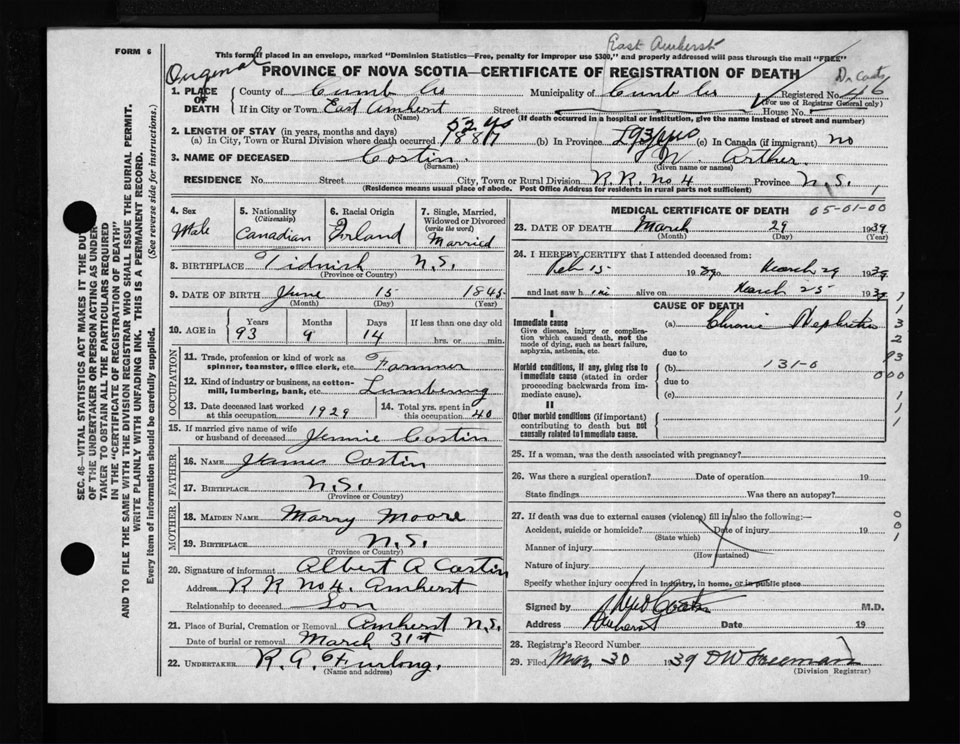 East Amherst
FORM 6
This form if placed in an envelope, marked "Dominion Statistics—Free, penalty for improper use $300," and properly addressed will pass through the mail "FREE"
Original
PROVINCE OF NOVA SCOTIA—CERTIFICATE OF REGISTRATION OF DEATH
1. PLACE OF DEATH County of Cumb Co Municipality of Cumb Co Registered No. 46
(For use of Registrar General only)
If in City or Town East Amherst Street House No.
(Name) (If death occurred in a hospital or institution, give the name instead of street and number)
2. LENGTH OF STAY (in years, months and days) 52 yrs
(a) In City, Town or Rural Division where death occurred 1887 (b) In Province 93 yrs (c) In Canada (if immigrant) no
3. NAME OF DECEASED Costin W. Arther
(Surname) (Given name or names)
RESIDENCE No. Street City, Town or Rural Division R.R. No 4 Province N.S.
(Residence means usual place of abode. Post Office Address for residents in rural parts not sufficient)
4. Sex Male
5. Nationality (Citizenship) Canadian
6. Racial Origin Irland
7. Single, Married, Widowed or Divorced (write the word) Married
8. BIRTHPLACE Tidnish N.S.
(Province or Country)
9. DATE OF BIRTH June 15 1845
(Month) (Day) (Year)
10. AGE in Years Months Days If less than one day old
93 9 14 hrs. or min.
OCCUPATION
11. Trade, profession or kind of work as spinner, teamster, office clerk, etc. Farmer
12. Kind of industry or business, as cotton-mill, lumbering, bank, etc. Lumbering
13. Date deceased last worked at this occupation 1929
14. Total yrs. spent in this occupation 40
15. If married give name of wife or husband of deceased Jennie Costin
FATHER
16. NAME James Costin
17. BIRTHPLACE N.S.
(Province or Country)
MOTHER
18. MAIDEN NAME Marry Moore
19. BIRTHPLACE N.S.
(Province or Country)
20. Signature of informant Albert A Costin
Address R R No 4. Amherst
Relationship to deceased Son
21. Place of Burial, Cremation or Removal Amherst N.S.
Date of burial or removal March 31st
22. UNDERTAKER R. A. Furlong.
(Name and address)
MEDICAL CERTIFICATE OF DEATH
05-01-00
23. DATE OF DEATH March 29 1939
(Month) (Day) (Year)
24. I HEREBY CERTIFY that I attended deceased from:
Feb 15 1939 to March 29 1939
and last saw h im alive on March 25 1939
CAUSE OF DEATH
I
Immediate cause
Give disease, injury or complication which caused death, not the mode of dying, such as heart failure, asphyxia, asthenia, etc.
(a) Chronic Nephritis
due to
Morbid conditions, if any, giving rise to immediate cause (stated in order proceeding backwards from immediate cause).
(b) 131-0
due to
(c)
II
Other morbid conditions (if important) contributing to death but not causally related to immediate cause.
1
1
3
2
93
000
1
1
1
25. If a woman, was the death associated with pregnancy?
26. Was there a surgical operation? Date of operation 19
State findings Was there an autopsy?
27. If death was due to external causes (violence) fill in also the following:—
Accident, suicide or homicide? Date of injury 19
(State which)
Manner of injury
(How sustained)
Nature of injury
Specify whether injury occurred in industry, in home, or in public place
0
0
1
Signed by M.D.
Address Amherst Date 19
28. Registrar's Record Number
29. Filed Mar 30 1939 D W Freeman
(Division Registrar)
SEC. 46—VITAL STATISTICS ACT MAKES IT THE DUTY
OF THE UNDERTAKER OR PERSON ACTING AS UNDER-
TAKER TO OBTAIN ALL THE PARTICULARS REQUIRED
IN THE "CERTIFICATE OF REGISTRATION OF DEATH"
AND TO FILE THE SAME WITH THE DIVISION REGISTRAR WHO SHALL ISSUE THE BURIAL PERMIT.
WRITE PLAINLY WITH UNFADING INK. THIS IS A PERMANENT RECORD.
Every item of information should be carefully supplied. (See reverse side for instructions.)